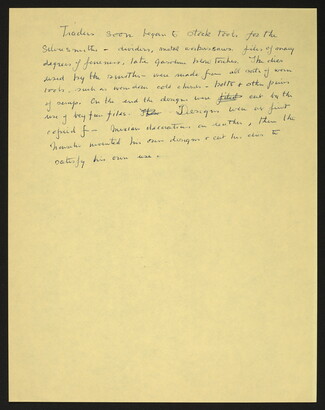 Traders soon began to stock tools for the
silversmiths - dividers, metal  saws files of many
degrees of fineness, later gasoline blow torches. The dies
used by the smiths were made from all sorts of worn
tools, such as worn down cold chisels - bolts & other pieces
of scraps. On the end the designs were filed cut by the
use of very fine files. The Designs were at first
copied from Mexican decorations on leather, then the
Navaho invented his own designs & cut his dies to
satisfy his own use.